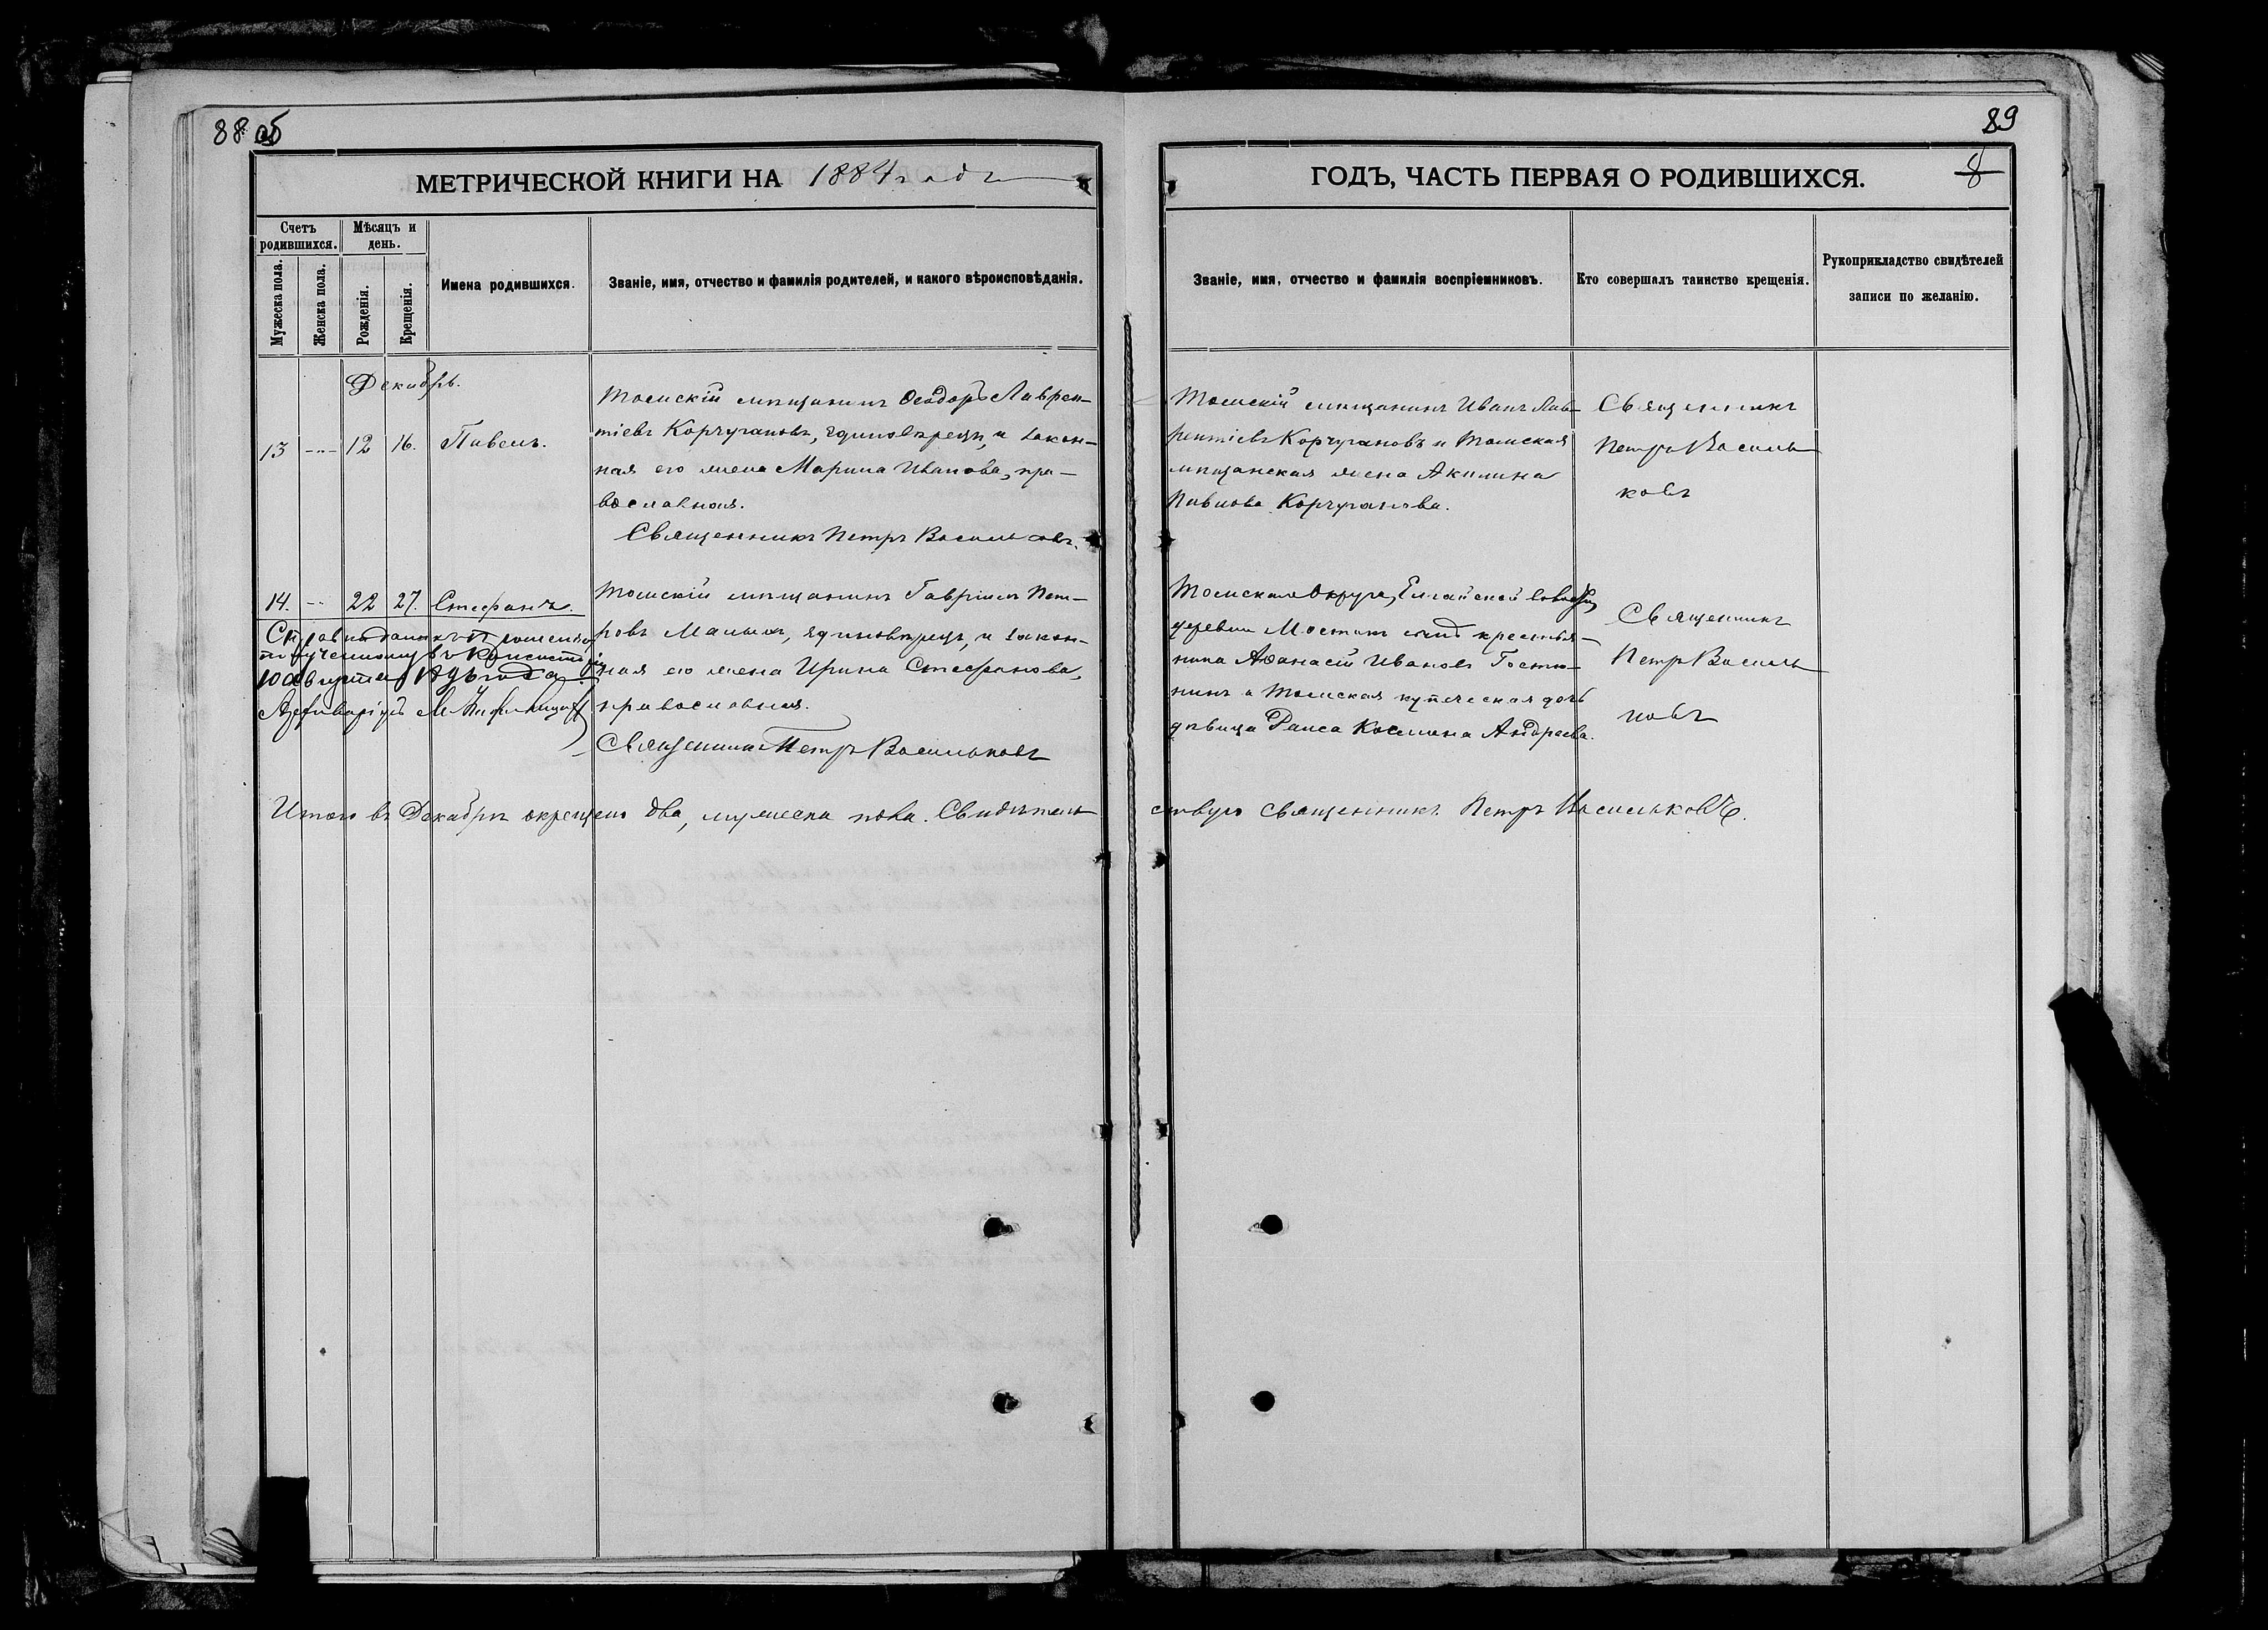 88 об
МЕТРИЧЕСКОЙ КНИГИ НА 1884 года
Счетъ родившихся.
Мѣсяцъ и день.
Мужеска пола.
Женска пола.
Рожденія.
Крещенія.
Имена родившихся.
Званіе, имя, отчество и фамилія родителей, и какого вѣроисповѣданія.
Декабрь.
13 -"- 12 16. Павелъ.
Томскій мѣщанинъ Ѳеодоръ Лаврен-
тіевъ Корчугановъ, единовѣрецъ, и закон-
ная его жена Марина Иванова, пра-
вославная.
Священникъ Петръ Васильковъ.
14. -"- 22 27. Стефанъ.
Томскій мѣщанинъ Гавріилъ Пет-
ровъ Малыхъ, единовѣрецъ, и закон-
ная его жена Ирина Стефанова,
православная.
Священникъ Петръ Васильковъ
полученному въ Консисторіи
10 августа
Архиваріусъ
Итого въ Декабрѣ окрещено два, мужеска пола. Свидѣтель-
89
ГОДЪ, ЧАСТЬ ПЕРВАЯ О РОДИВШИХСЯ.
8
Званіе, имя, отчество и фамилія воспріемниковъ.
Кто совершалъ таинство крещенія.
Рукоприкладство свидѣтелей записи по желанію.
Томскій мѣщанинъ Иванъ Лав-
рентіевъ Корчугановъ и Томская
мѣщанская жена Акилина
Павлова Корчуганова.
Священникъ
Петръ Василь
ковъ
Томскаго Округа, Елгайской волости,
деревни крестья-
нина Аѳанасій Ивановъ Гости-
нинъ и Томская купеческая дочь
дѣвица Раиса Космина Андреева.
Священникъ
Петръ Василь
ковъ
ствую священникъ Петръ Васильковъ.